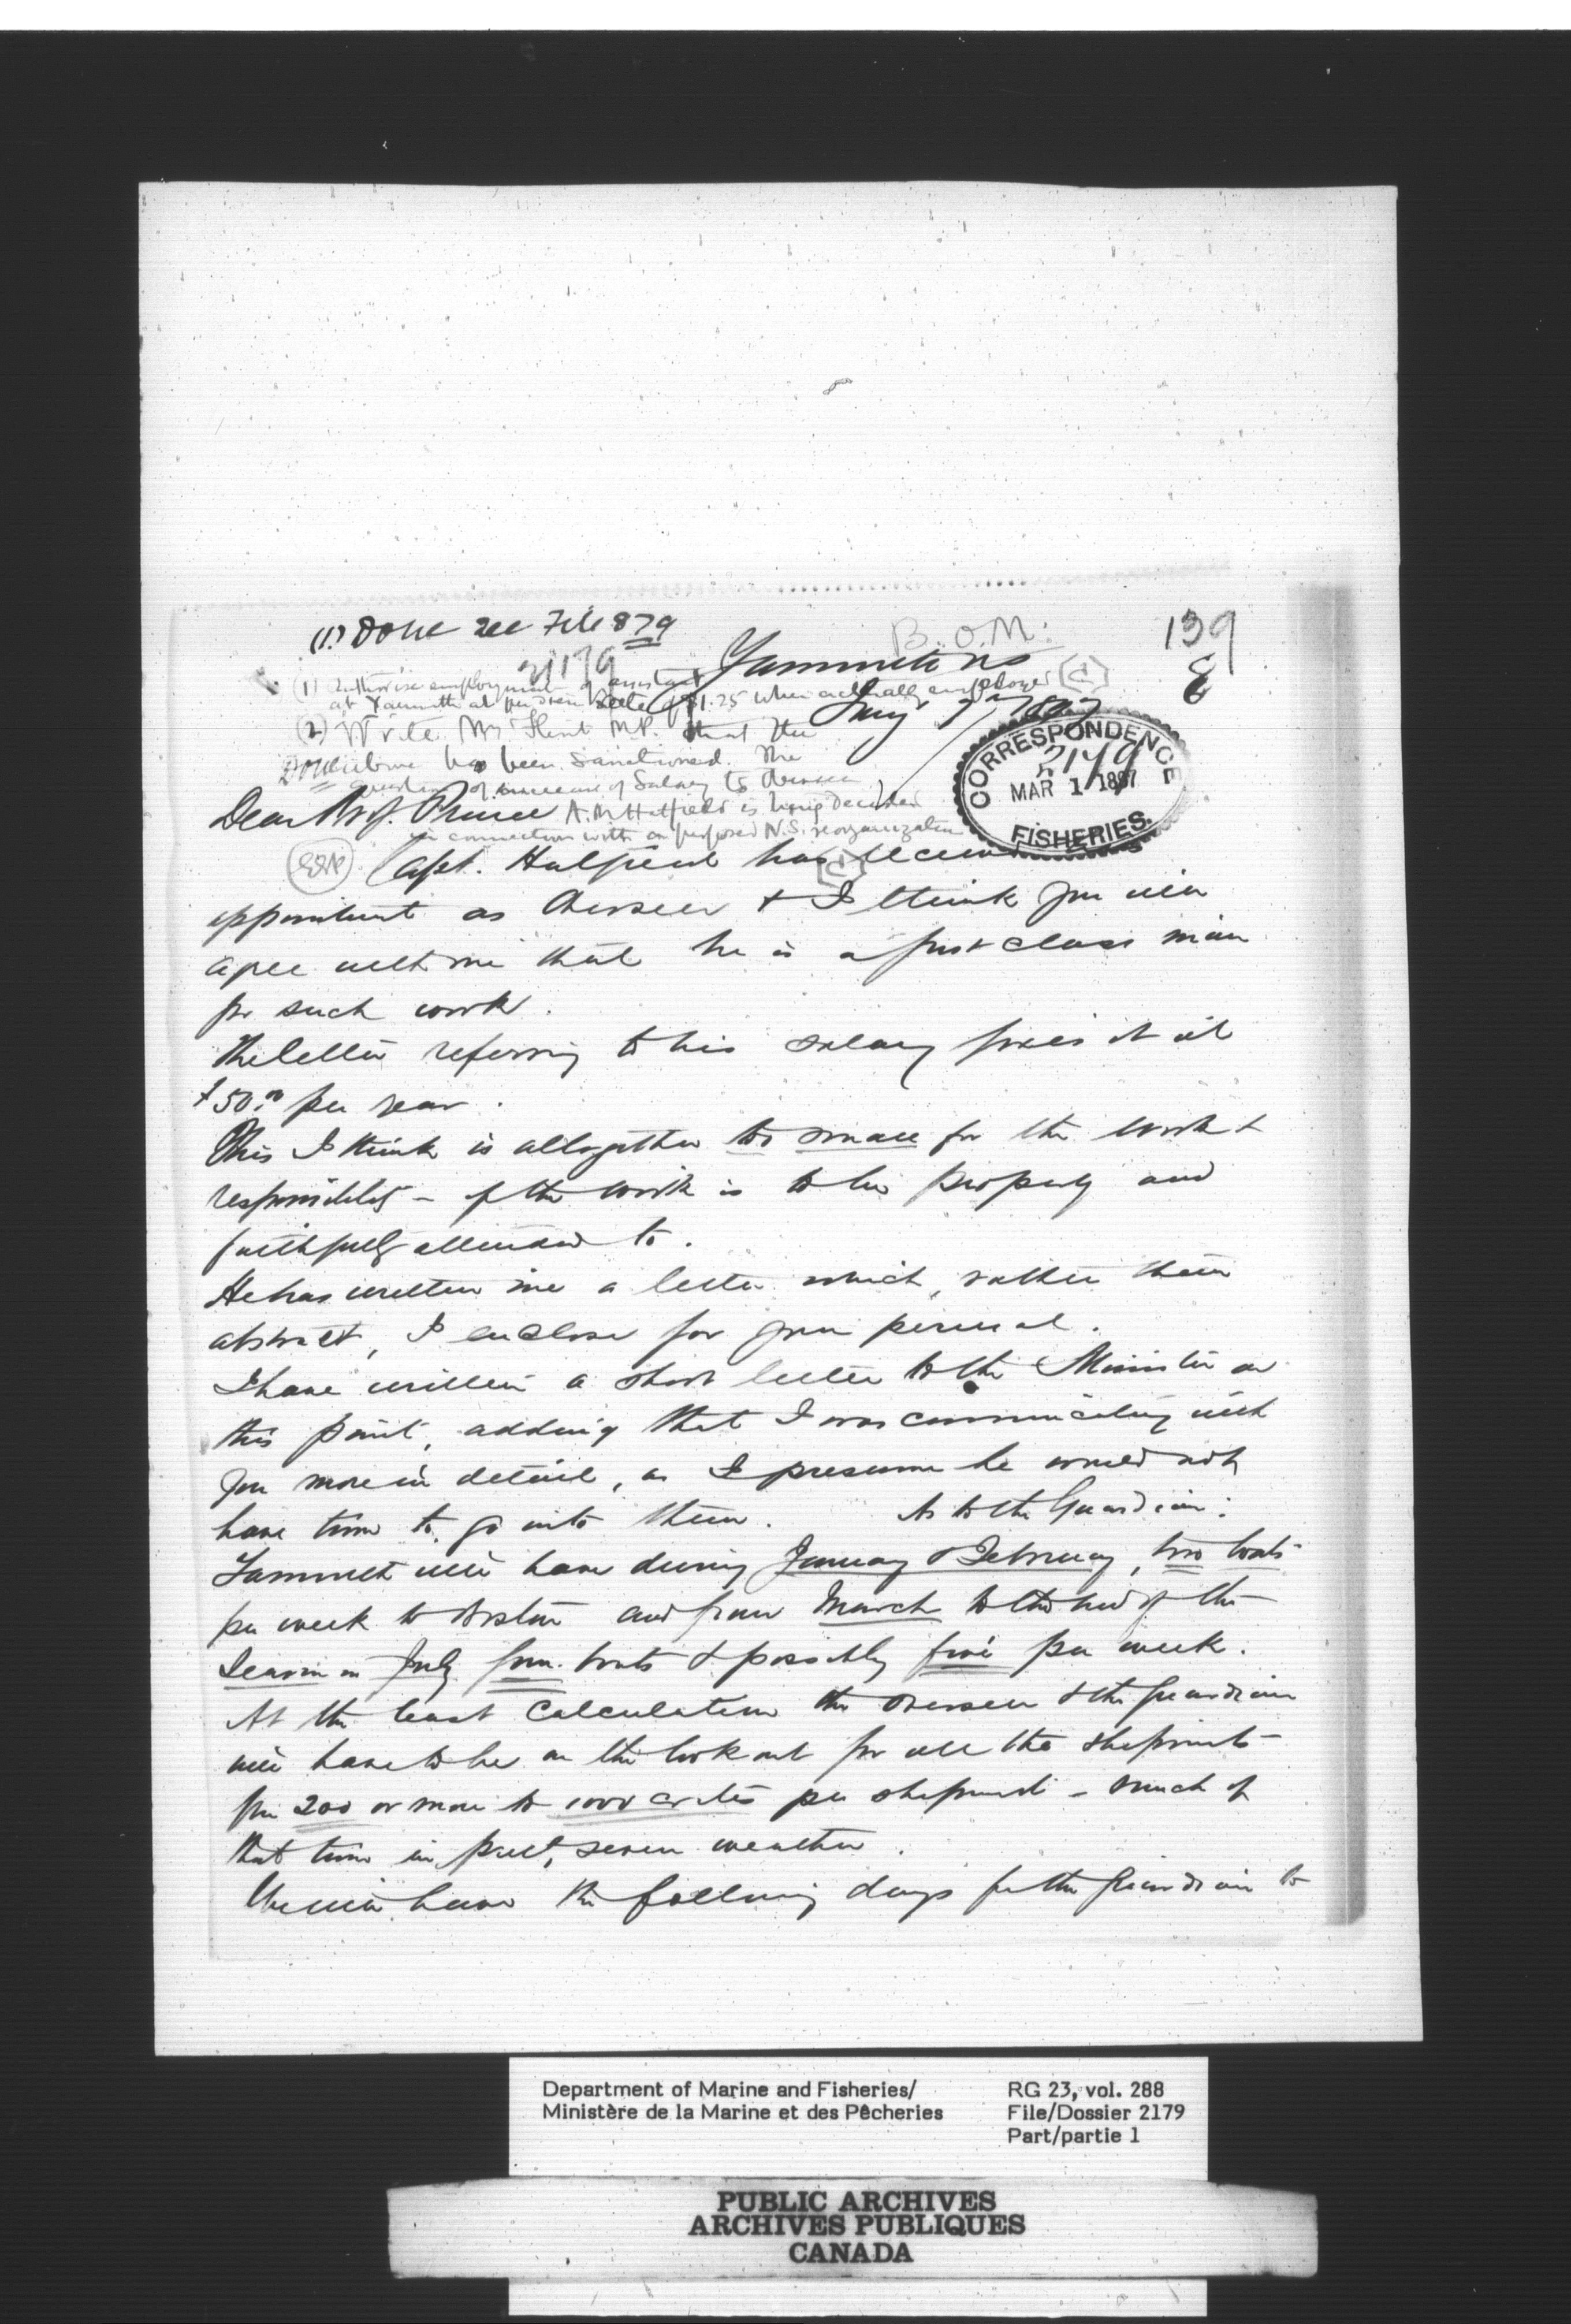 (1) Done see File 879
B.O.M.
139
2179
Yarmouth NS
(1) Authorise employment of assistant
at Yarmouth at per diem rate of $1.25 when actually employed
Jany 7th 1897
(2) Write Mr Flint M.P. that the
Done above has been sanctioned. The
question of increase of Salary to Overseer
A. M. Hatfield is being decided
in connection with a proposed N.S. reorganization
CORRESPONDENCE
2179
MAR 1 1897
FISHERIES.
Dear Prof. Prince
Capt. Hatfield has received
appointment as Overseer & I think you will
agree with me that he is a first class man
for such work.
The letter referring to his salary fixes it at
$50.00 per year.
This I think is altogether too small for the work &
responsibility - if the work is to be properly and
faithfully attended to.
He has written me a letter which, rather than
abstract, I enclose for your perusal.
I have written a short letter to the Minister on
this point, adding that I was communicating with
you more in detail, as I presume he would not
have time to go into them. As to the Guardian:
Yarmouth will have during January & February, two boats
per week to Boston and from March to the end of the
Season in July four boats & possibly five per week.
At the least calculation the Overseer & the Guardian
will have to be on the lookout for all the shipments
from 200 or more to 1000 crates per shipment - much of
that time in past, severe weather.
We will have the following days for the Guardian to
Department of Marine and Fisheries/
Ministère de la Marine et des Pêcheries
RG 23, vol. 288
File/Dossier 2179
Part/partie 1
PUBLIC ARCHIVES
ARCHIVES PUBLIQUES
CANADA